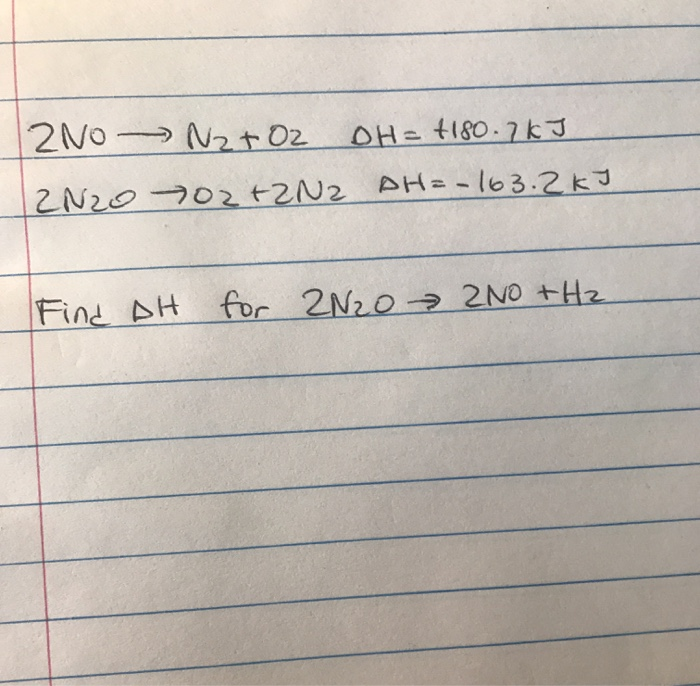 2NO → N2 + O2 ΔH = +180.7 kJ
2N2O → O2 + 2N2 ΔH = -163.2 kJ
Find ΔH for 2N2O → 2NO + H2